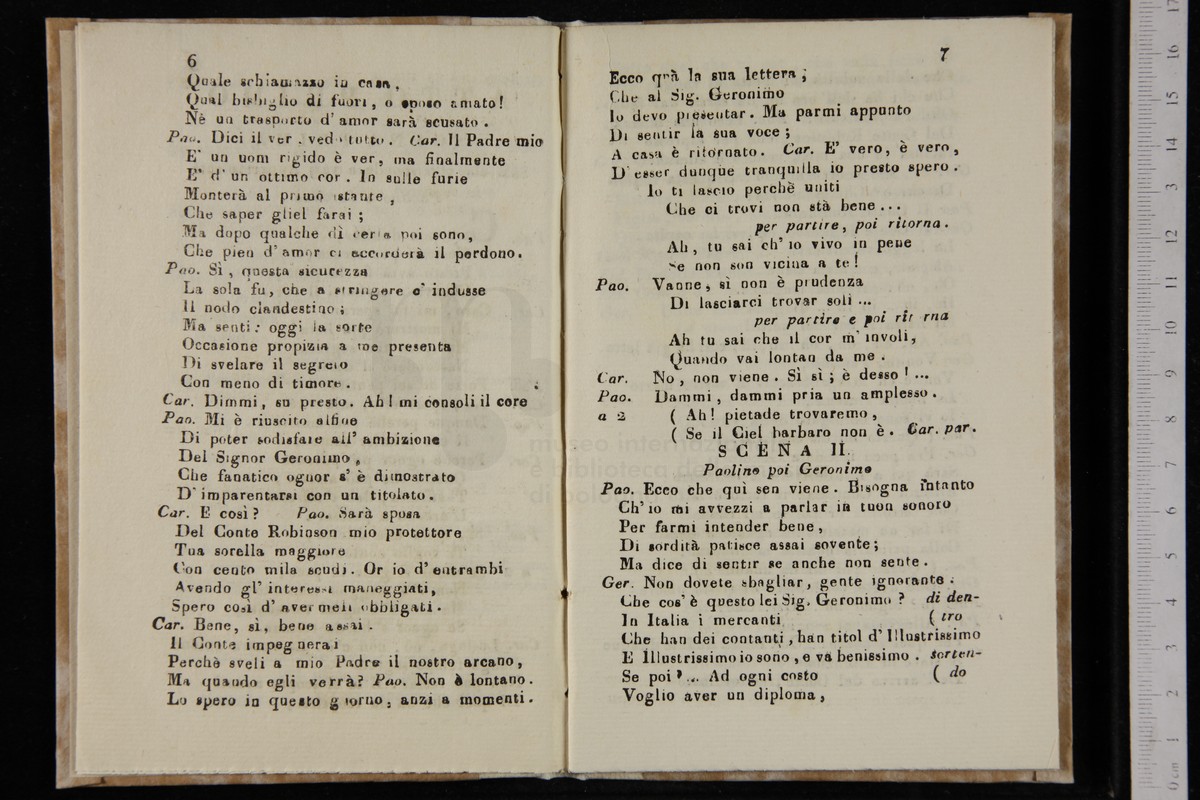 6
Quale schiamazzo in casa,
Qual bisbiglio di fuori, o sposo amato!
Nè un trasporto d' amor sarà scusato.
Pao. Dici il ver. vedo tutto. Car. Il Padre mio
E' un uom rigido è ver, ma finalmente
E' d' un ottimo cor. In sulle furie
Monterà al primo istante,
Che saper gliel farai;
Ma dopo qualche dì certa poi sono,
Che pien d' amor ci accorderà il perdono.
Pao. Sì, questa sicurezza
La sola fu, che a stringere c' indusse
Il nodo clandestino;
Ma senti: oggi la sorte
Occasione propizia a me presenta
Di svelare il segreto
Con meno di timore.
Car. Dimmi, su presto. Ah! mi consoli il core
Pao. Mi è riuscito alfine
Di poter sodisfare all' ambizione
Del Signor Geronimo,
Che fanatico ognor s' è dimostrato
D' imparentarsi con un titolato.
Car. E così? Pao. Sarà sposa
Del Conte Robinson mio protettore
Tua sorella maggiore
Con cento mila scudi. Or io d' entrambi
Avendo gl' interessi maneggiati,
Spero così d' avermeli obbligati.
Car. Bene, sì, bene assai.
Il Conte impegnerai
Perchè sveli a mio Padre il nostro arcano,
Ma quando egli verrà? Pao. Non è lontano.
Lo spero in questo giorno, anzi a momenti.
7
Ecco quà la sua lettera;
Che al Sig. Geronimo
Io devo presentar. Ma parmi appunto
Di sentir la sua voce;
A casa è ritornato. Car. E' vero, è vero,
D' esser dunque tranquilla io presto spero.
Io ti lascio perchè uniti
Che ci trovi non stà bene...
per partire, poi ritorna.
Ah, tu sai ch' io vivo in pene
Se non son vicina a te!
Pao. Vanne, sì non è prudenza
Di lasciarci trovar soli...
per partire e poi rit rna
Ah tu sai che il cor m' involi,
Quando vai lontan da me.
Car. No, non viene. Sì sì; è desso!...
Pao. Dammi, dammi pria un amplesso.
a 2 ( Ah! pietade trovaremo,
( Se il Ciel barbaro non è. Car. par.
SCENA II.
Paolino poi Geronimo
Pao. Ecco che quì sen viene. Bisogna intanto
Ch' io mi avvezzi a parlar in tuon sonoro
Per farmi intender bene,
Di sordità patisce assai sovente;
Ma dice di sentir se anche non sente.
Ger. Non dovete sbagliar, gente ignorante.
Che cos' è questo lei Sig. Geronimo? di den-
In Italia i mercanti ( tro
Che han dei contanti, han titol d' Illustrissimo
E Illustrissimo io sono, e va benissimo. sorten-
Se poi... Ad ogni costo ( do
Voglio aver un diploma,